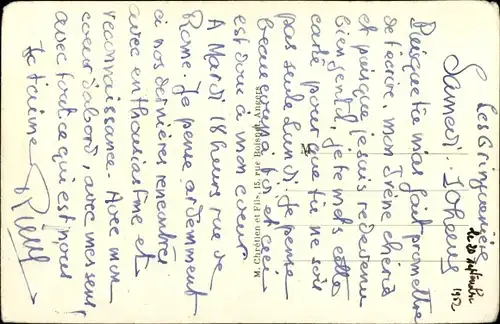 Les Gringuenière
Samedi 20 heures
le 20 septembre 1952
Puisque tu m'as fait promettre
de t'écrire, mon Irène chérie
et puisque je suis redevenu
bien gentil, je te mets cette
carte pour que tu ne sois
pas seule Lundi. Je pense
beaucoup à toi et ceci
est doux à mon coeur
A Mardi 18 heures rue de
Rome. Je pense ardemment
à nos dernières rencontres
avec enthousiasme et
reconnaissance. Avec mon
coeur d'abord, avec mes sens
avec tout ce qui est nous
Je t'aime
M. Chrétien et Fils, 15, rue Boisnet, Angers